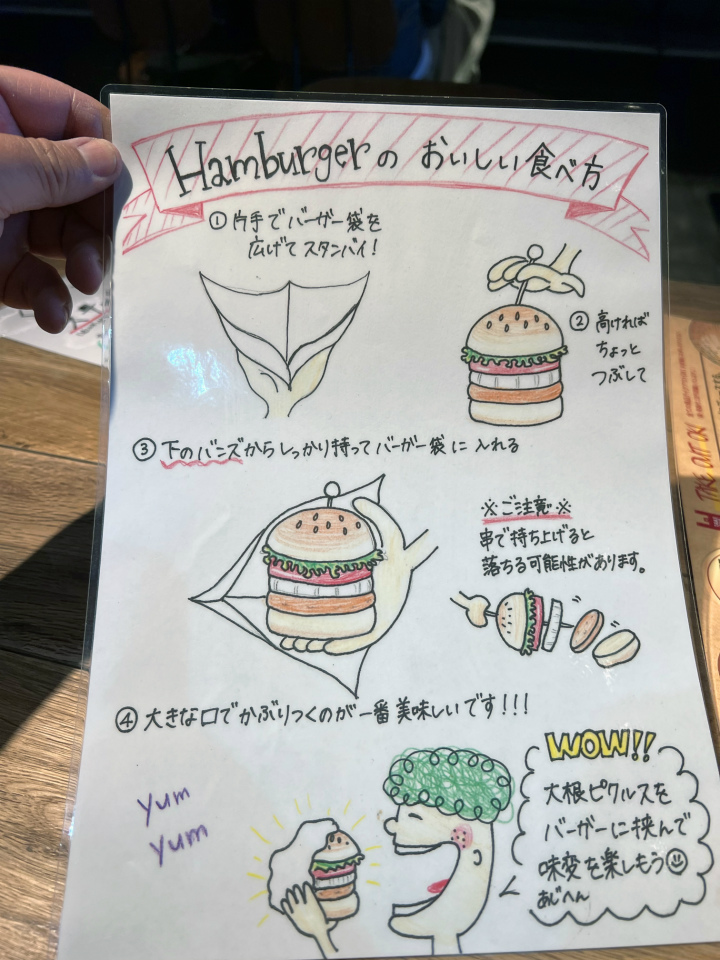 Hamburgerの おいしい食べ方
① 片手でバーガー袋を
広げてスタンバイ!
② 高ければ
ちょっと
つぶして
③ 下のバンズからしっかり持ってバーガー袋に入れる
※ご注意※
串で持ち上げると
落ちる可能性があります。
④ 大きな口でかぶりつくのが一番美味しいです!!!
Yum
Yum
WOW!!
大根ピクルスを
バーガーに挟んで
味変を楽しもう
あじへん
TAKE OUT OK